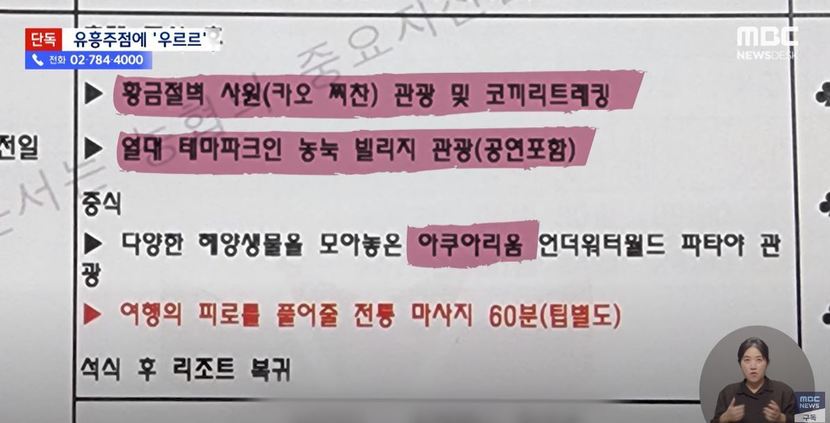 단독 유흥주점에 '우르르'
전화 02·784·4000
MBC
NEWSDESK
중요자산
▶ 황금절벽 사원(카오 찌찬) 관광 및 코끼리트레킹
전일
▶ 열대 테마파크인 농눅 빌리지 관광(공연포함)
중식
▶ 다양한 해양생물을 모아놓은 아쿠아리움 언더워터월드 파타야 관
광
▶ 여행의 피로를 풀어줄 전통 마사지 60분(팁별도)
석식 후 리조트 복귀
MBC
NEWS
구독